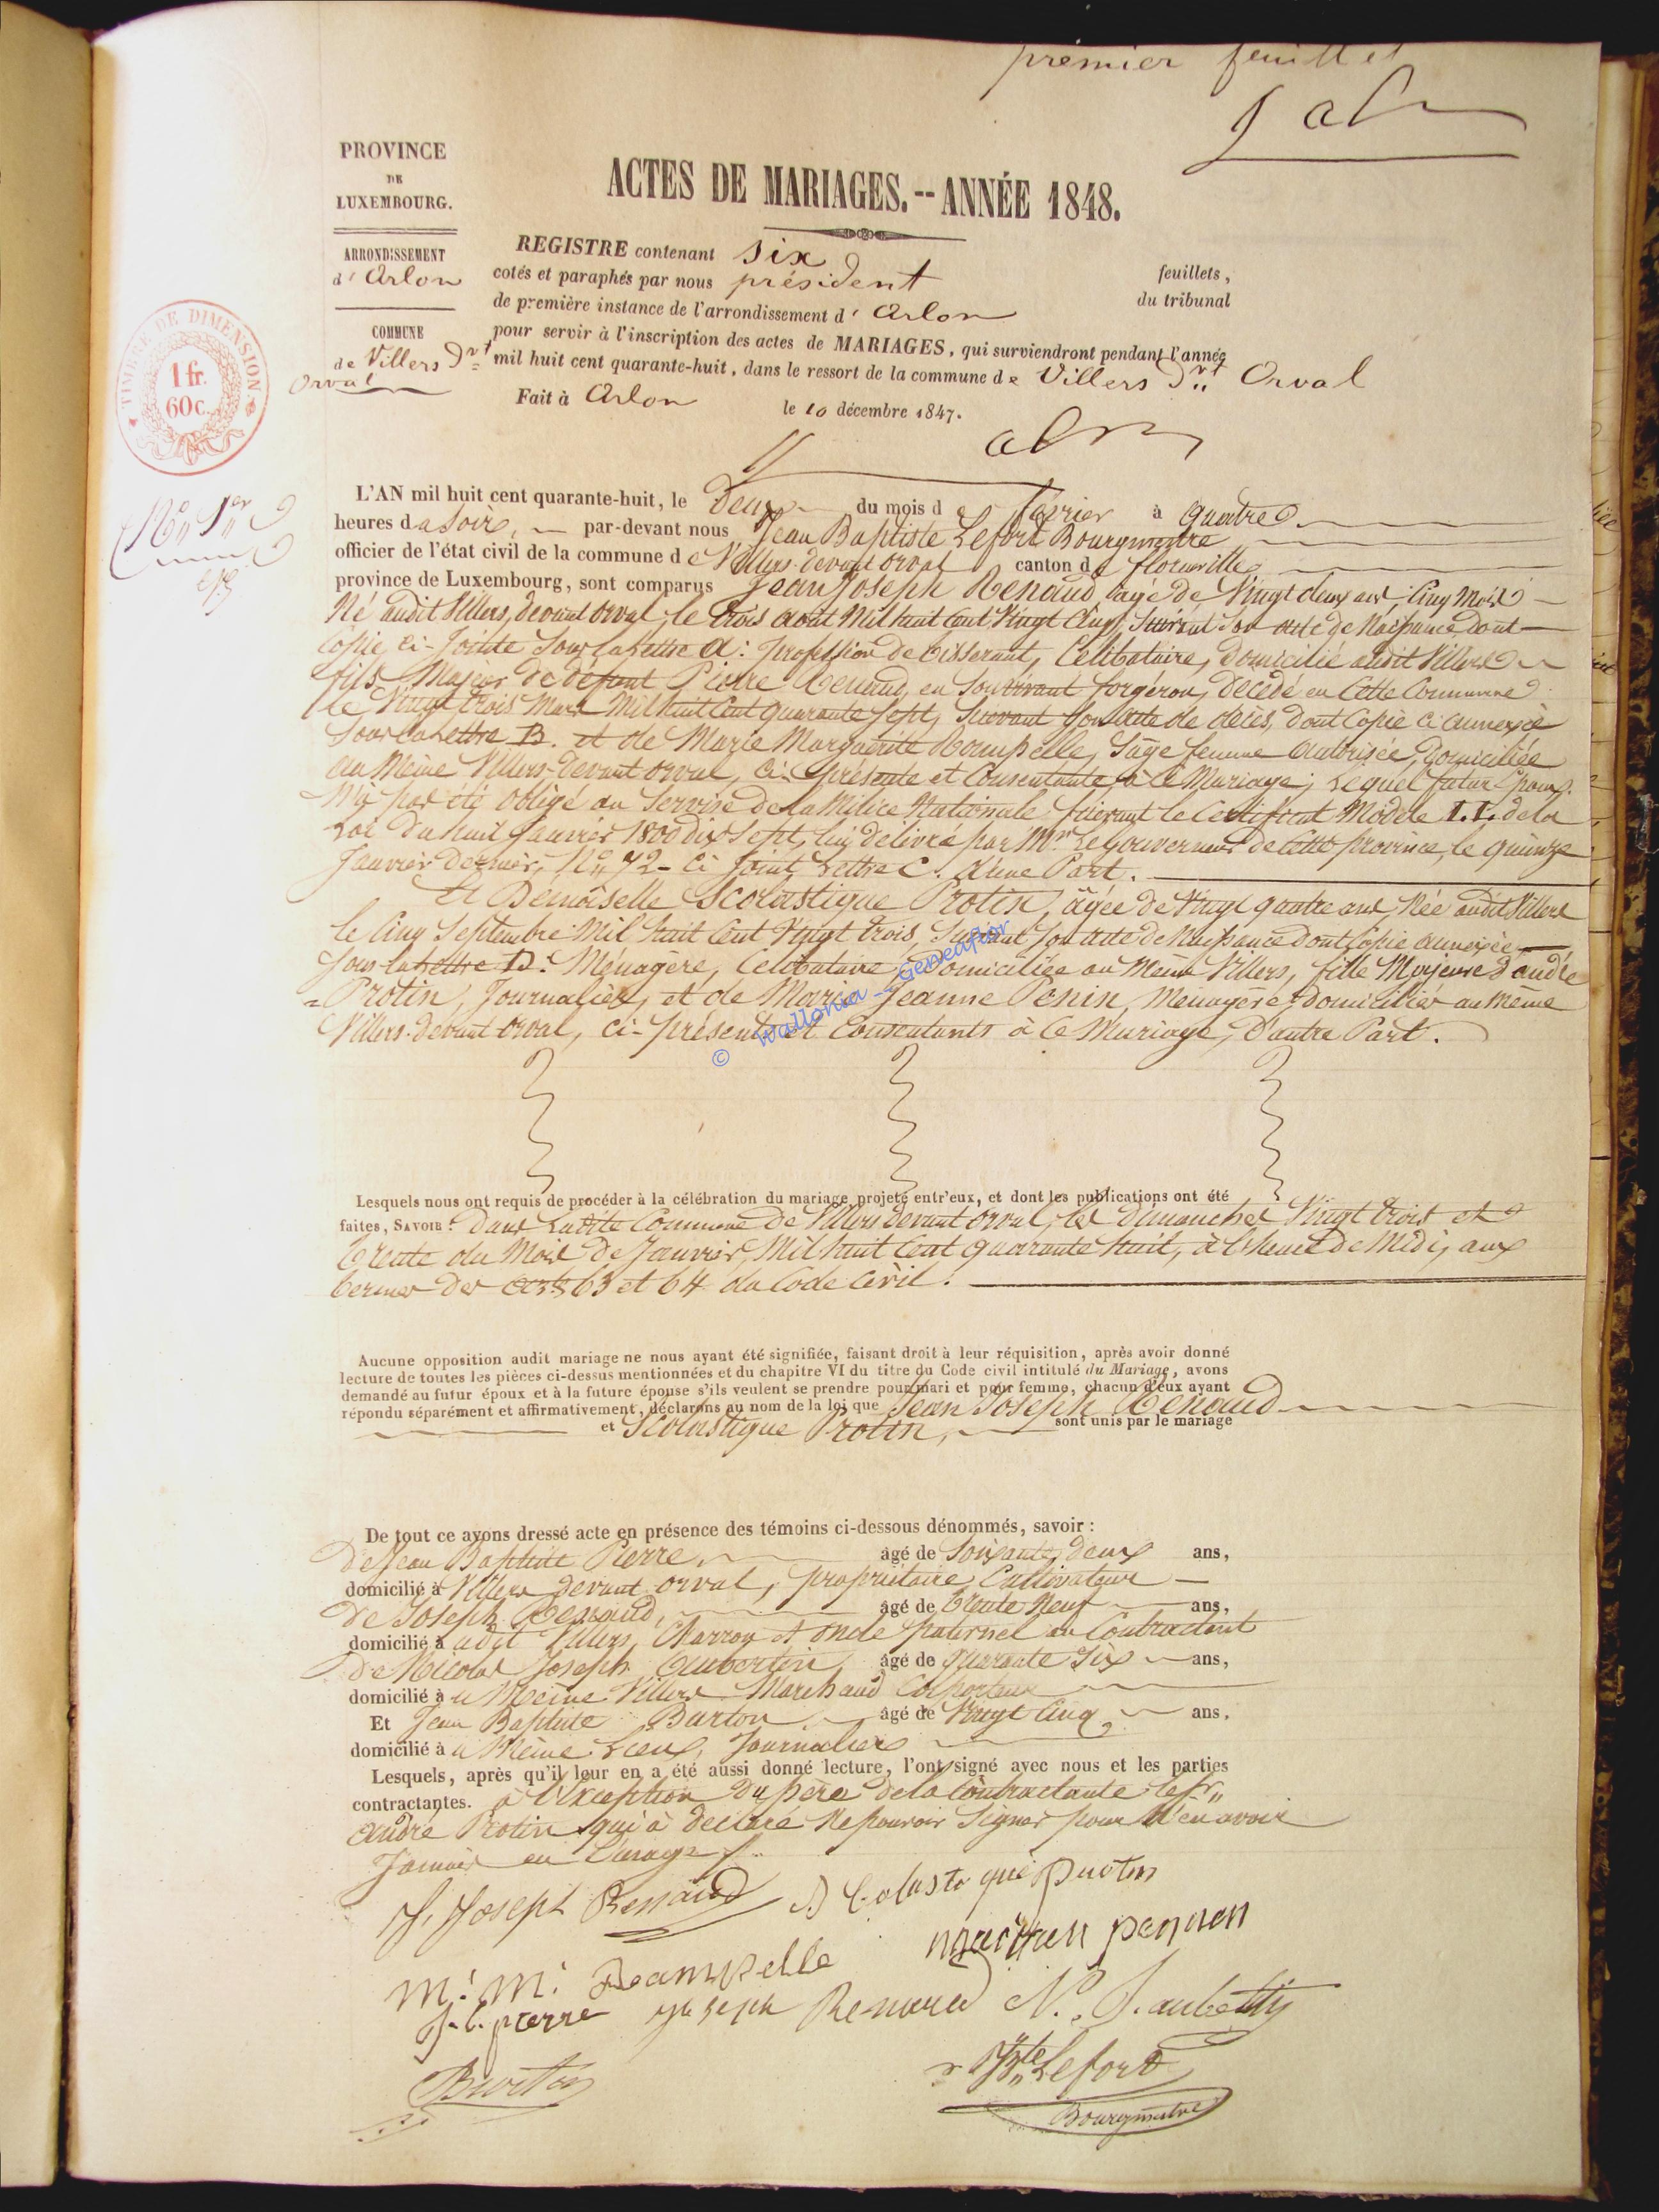 premier feuillet
PROVINCE
DE
LUXEMBOURG.
ACTES DE MARIAGES.--ANNÉE 1848.
ARRONDISSEMENT
d' Arlon
COMMUNE
de Villers Dvt
Orval
TIMBRE DE DIMENSION.
1 fr.
60 c.
REGISTRE contenant six feuillets,
cotés et paraphés par nous président du tribunal
de première instance de l'arrondissement d' Arlon
pour servir à l'inscription des actes de MARIAGES, qui surviendront pendant l'année
mil huit cent quarante-huit, dans le ressort de la commune de Villers Dvt Orval
Fait à Arlon le 10 décembre 1847.
No 1er
L'AN mil huit cent quarante-huit, le Deux du mois de février à quatre
heures da Soir, par-devant nous Jean Baptiste Lefort Bourgmestre
officier de l'état civil de la commune de Villers-devant orval canton de florenville
province de Luxembourg, sont comparus Jean Joseph Renaud, âgé de Vingt deux ans, Cinq Mois
Né audit Villers, devant orval, le trois août Mil huit Cent Vingt Cinq, Suivant Son acte de Naissance, dont
Copie Ci-Jointe Sous la Lettre A: profession de tisserant, Célibataire, Domicilié audit Villers
fils Majeur de défunt Pierre Renaud, en Son vivant forgéron, Décédé en Cette Commune
le Vingt trois Mars Mil huit Cent quarante Sept, Suivant Son acte de décès, dont Copie Ci annexée
Sous la Lettre B. et de Marie Marguerite Rampelle, Sage femme autorisée, Domiciliée
au Même Villers-devant orval, Ci-présente et Consentante à Ce Mariage; Lequel futur Epoux
N'a pas été obligé au Service de la Milice Nationale suivant le Certificat Modèle I.I. de la
Loi du huit Janvier 1800 dix Sept, lui délivré par Mr Le Gouverneur de Cette province, le quinze
Janvier dernier, No 72 - Ci Joint Lettre C. d'une Part.
Et Demoiselle Scolastique Protin, âgée de Vingt quatre ans, Née audit Villers
le Cinq Septembre Mil huit Cent Vingt trois, Suivant Son acte de Naissance dont Copie annexée
Sous la Lettre D. Ménagère, Célibataire, Domiciliée au Même Villers, fille Majeure d'andré
Protin, Journalier, et de Marie Jeanne Penin, Ménagère, domiciliés au même
Villers-devant orval, ci-présents et Consentants à Ce Mariage, D'autre Part.
© Wallonia - Geneafior
Lesquels nous ont requis de procéder à la célébration du mariage projeté entr'eux, et dont les publications ont été
faites, SAVOIR: Dans Ladite Commune de Villers devant orval, les dimanches Vingt trois et
trente du Mois de Janvier, Mil huit Cent quarante huit, à l'heure de Midi, aux
termes des arts 63 et 64 du Code Civil.
Aucune opposition audit mariage ne nous ayant été signifiée, faisant droit à leur réquisition, après avoir donné
lecture de toutes les pièces ci-dessus mentionnées et du chapitre VI du titre du Code civil intitulé du Mariage, avons
demandé au futur époux et à la future épouse s'ils veulent se prendre pour mari et pour femme, chacun d'eux ayant
répondu séparément et affirmativement, déclarons au nom de la loi que Jean Joseph Renaud
et Scolastique Protin, sont unis par le mariage
De tout ce avons dressé acte en présence des témoins ci-dessous dénommés, savoir:
De Jean Baptiste Pierre, âgé de Soixante deux ans,
domicilié à Villers devant orval, propriétaire Cultivateur
De Joseph Renaud, âgé de trente Neuf ans,
domicilié a udit Villers, Charron et oncle paternel au Contractant
De Nicolas Joseph Aubertin, âgé de quarante Six ans,
domicilié a u Même Villers Marchand Colporteur
Et Jean Baptiste Burton âgé de Vingt Cinq ans,
domicilié à u Même Lieu, Journalier
Lesquels, après qu'il leur en a été aussi donné lecture, l'ont signé avec nous et les parties
contractantes. à l'Exception du père de la Contractante, le Sr
andré Protin qui à déclaré Ne pouvoir Signer pour N'en avoir
Jamais eu l'usage
J. Joseph Renaud
M. M. Rampelle
J. b. pierre Joseph Renaud N. J. aubertin
Burton
Bte Lefort
Bourgmestre